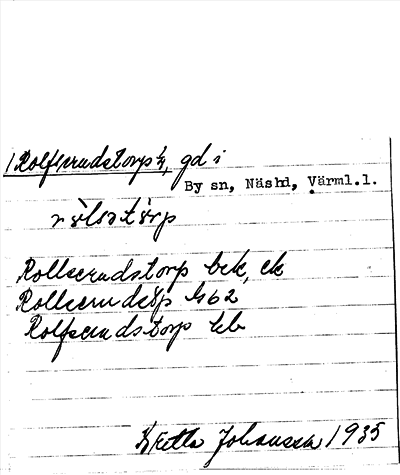 Rolfserudstorp ½, gd i
By sn, Näshd, Värml.l.
Rollserudstorp bek, ek
Rollserudstp hs62
Rolfserudstorp kb
Johansson 1935